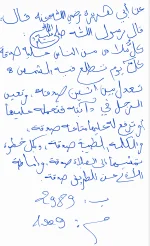 عن أبي هريرة رضي الله عنه قال:
قال رسول الله ﷺ
كل سلامى من الناس عليه صدقة
كل يوم تطلع فيه الشمس
تعدل بين اثنين صدقة، وتعين
الرجل في دابته فتحمله عليها
أو ترفع له عليها متاعه صدقة،
والكلمة الطيبة صدقة، وكل خطوة
تمشيها إلى الصلاة صدقة، وتميط
الأذى عن الطريق صدقة
2989
1009